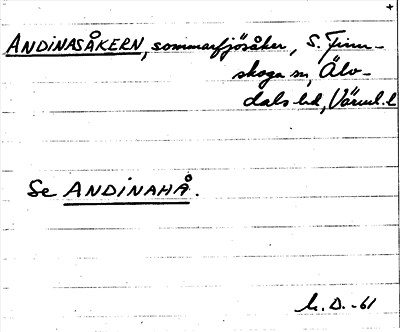 +
ANDINASÅKERN, sommarfjösåker, S. Finn-
skoga sn, Älv-
dals hd, Värml. l
Se ANDINAHÅ.
h. D. -61